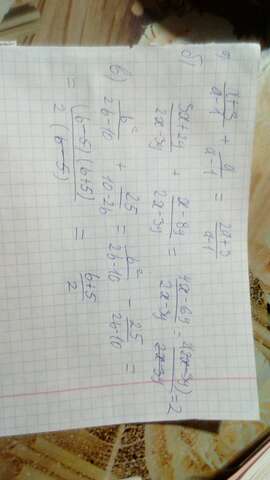 а) (7+a)/(a-1) + a/(a-1) = (2a+7)/(a-1)
б) (3x+2y)/(2x-3y) + (x-8y)/(2x-3y) = (4x-6y)/(2x-3y) = 2(2x-3y)/(2x-3y) = 2
в) b²/(2b-10) + 25/(10-2b) = b²/(2b-10) - 25/(2b-10) =
= (b-5)(b+5)/2(b-5) = (b+5)/2